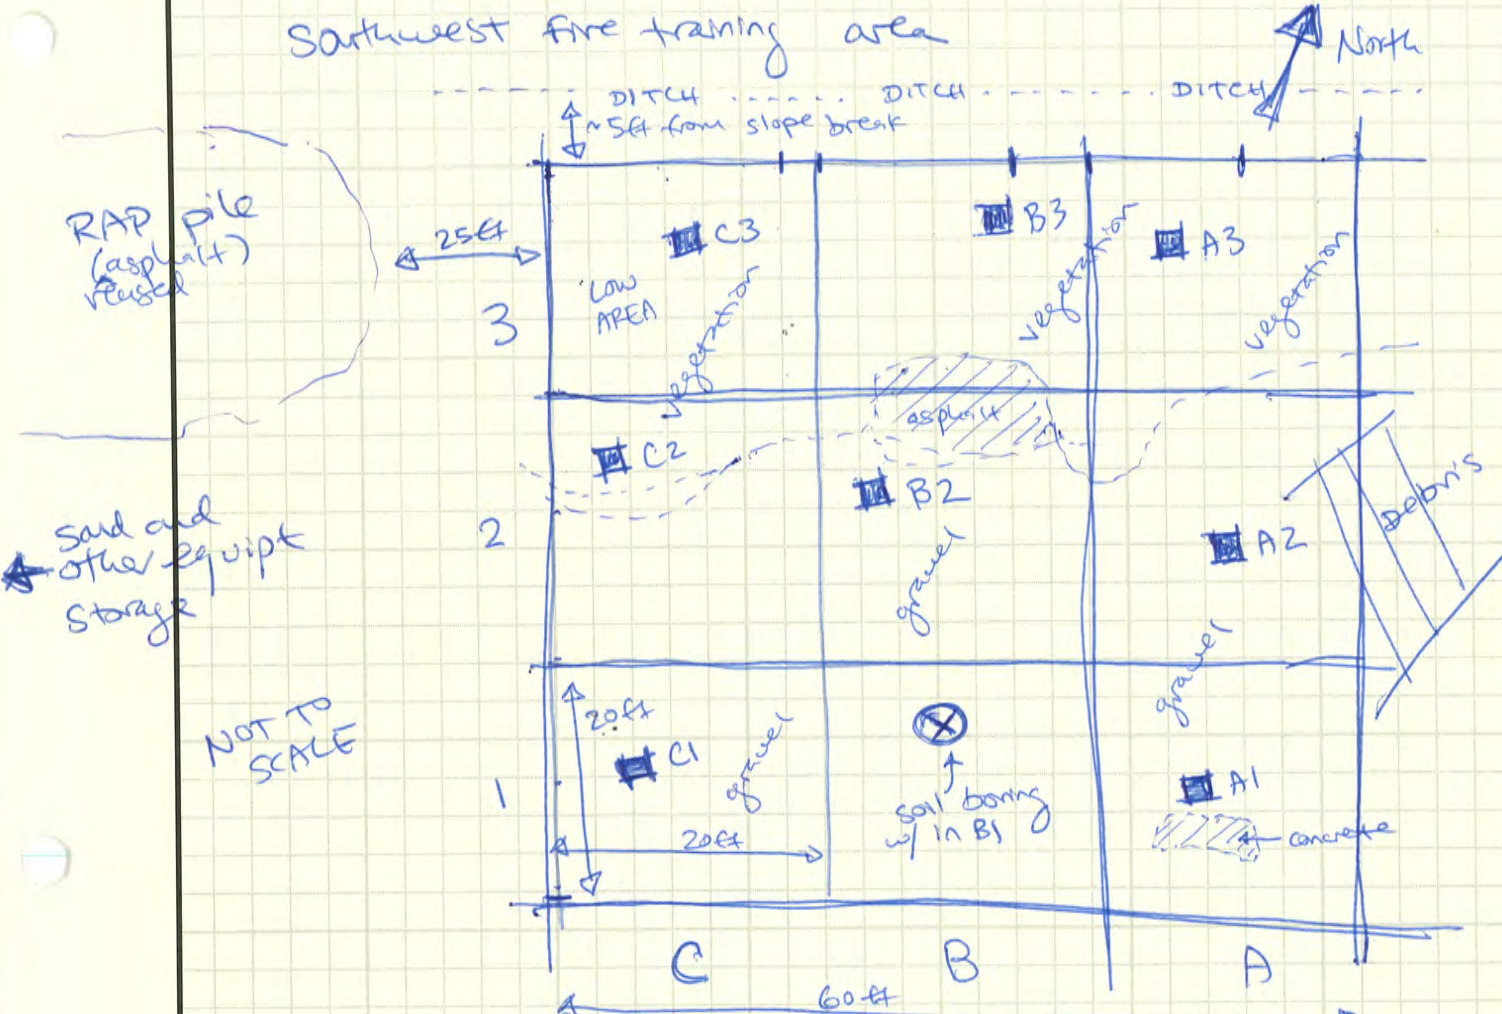 Southwest fire training area
North
DITCH DITCH DITCH
~5ft from slope break
RAP pile
(asphalt)
reused
25ft
C3
B3
A3
LOW
AREA
vegetation
vegetation
vegetation
3
asphalt
C2
B2
A2
Debris
2
sand and
other equipt
storage
gravel
gravel
NOT TO
SCALE
20ft
C1
gravel
1
soil boring
w/in B1
A1
concrete
20ft
C B A
60ft